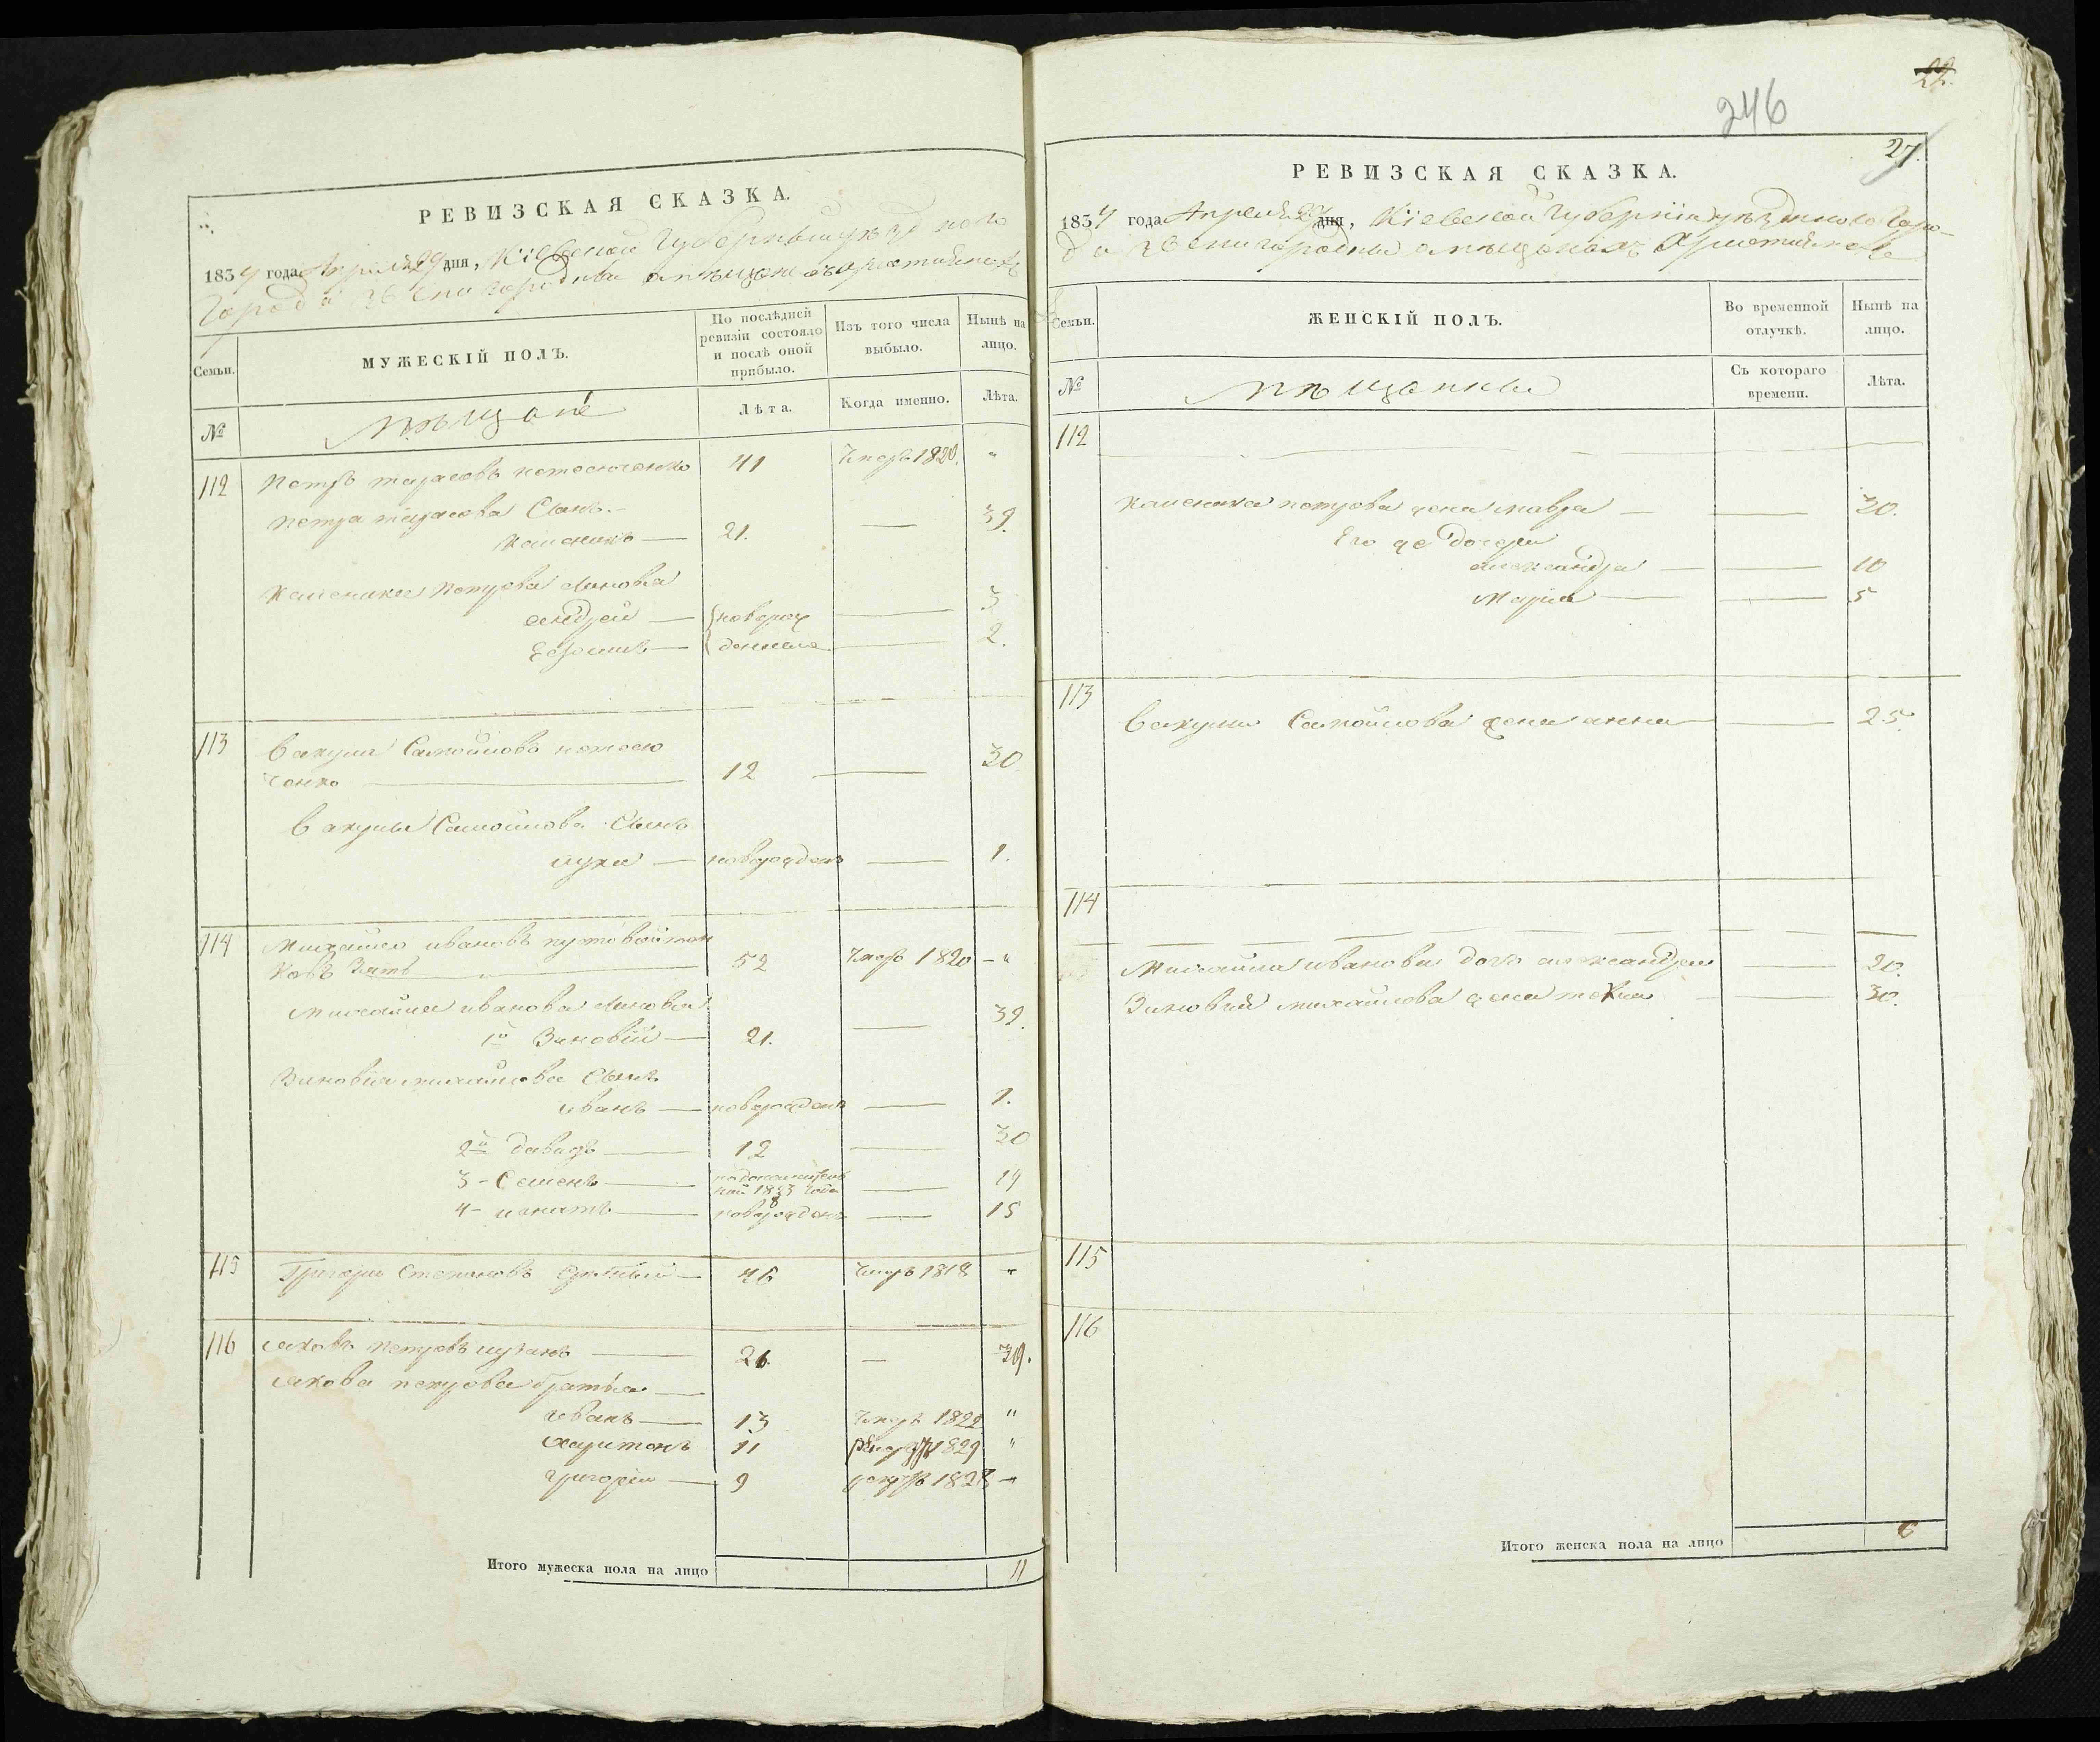 РЕВИЗСКАЯ СКАЗКА.
1834 года Апреля 29 дня, Кіевской Губерніи уѣзднаго
Города Звенигородки о мѣщанахъ христіянахъ
Семьи.
МУЖЕСКІЙ ПОЛЪ.
По послѣдней ревизіи состояло и послѣ оной прибыло.
Изъ того числа выбыло.
Нынѣ на лицо.
№
мѣщане
Лѣта.
Когда именно.
Лѣта.
112 Петръ тарасовъ 41 Умеръ 1820. "
Петра тарасова Сынъ
21. — 39.
Петрова сыновья
андрей — новорож — 3
— денные — 2.
113 Вакула Самойловъ
ченко — 12 — 30.
Вакулы Самойлова Сынъ
лука — новорожденъ — 1.
114 Михайло ивановъ
Зять 52 Умеръ 1820 — "
Михайла иванова сыновья
1й Зиновій — 21. — 39.
Зиновія михайлова Сынъ
иванъ — новорожденъ — 1.
2й давидъ — 12 — 30
3 - Семенъ — 19
4 - игнатъ — новорожденъ — 15
115 Григорій Степановъ — 46 Умеръ 1818 "
116 Яковъ Петровъ — 21. — 39.
Якова петрова братья —
иванъ — 13 Умеръ 1822 "
харитонъ 11 1829 "
григорій — 9 1828 — "
Итого мужеска пола на лицо 11
22.
246
27.
РЕВИЗСКАЯ СКАЗКА.
1834 года Апреля 29 дня, Кіевской Губерніи уѣзднаго Горо-
да Звенигородки о мѣщанахъ христіянахъ
Семьи.
ЖЕНСКІЙ ПОЛЪ.
Во временной отлучкѣ.
Нынѣ на лицо.
№
мѣщанки
Съ котораго времени.
Лѣта.
112
петрова жена мавра — — 30.
Его же дочери
александра — — 10
Марія — — 5
113
Вакулы Самойлова жена анна — 25.
114
Михайла иванова дочь александра — 20.
Зиновія михайлова жена — 30.
115
116
Итого женска пола на лицо 6